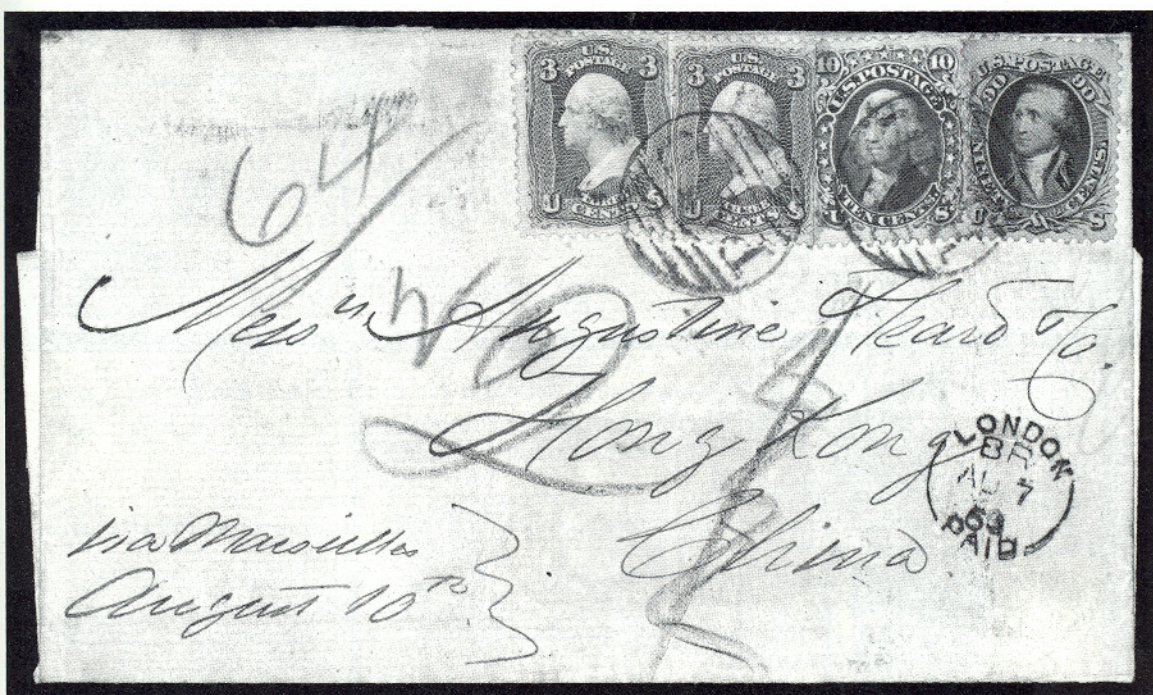 3 U.S. POSTAGE 3
THREE CENTS
U S
3 U.S. POSTAGE 3
THREE CENTS
U S
10 U.S. POSTAGE 10
TEN CENTS
U S
U.S. POSTAGE
90 90
NINETY CENTS.
U S
64
Messrs Augustine Heard & Co.
Hong Kong
China
LONDON
BR
AU 7
63
PAID
via Marseilles
August 10th